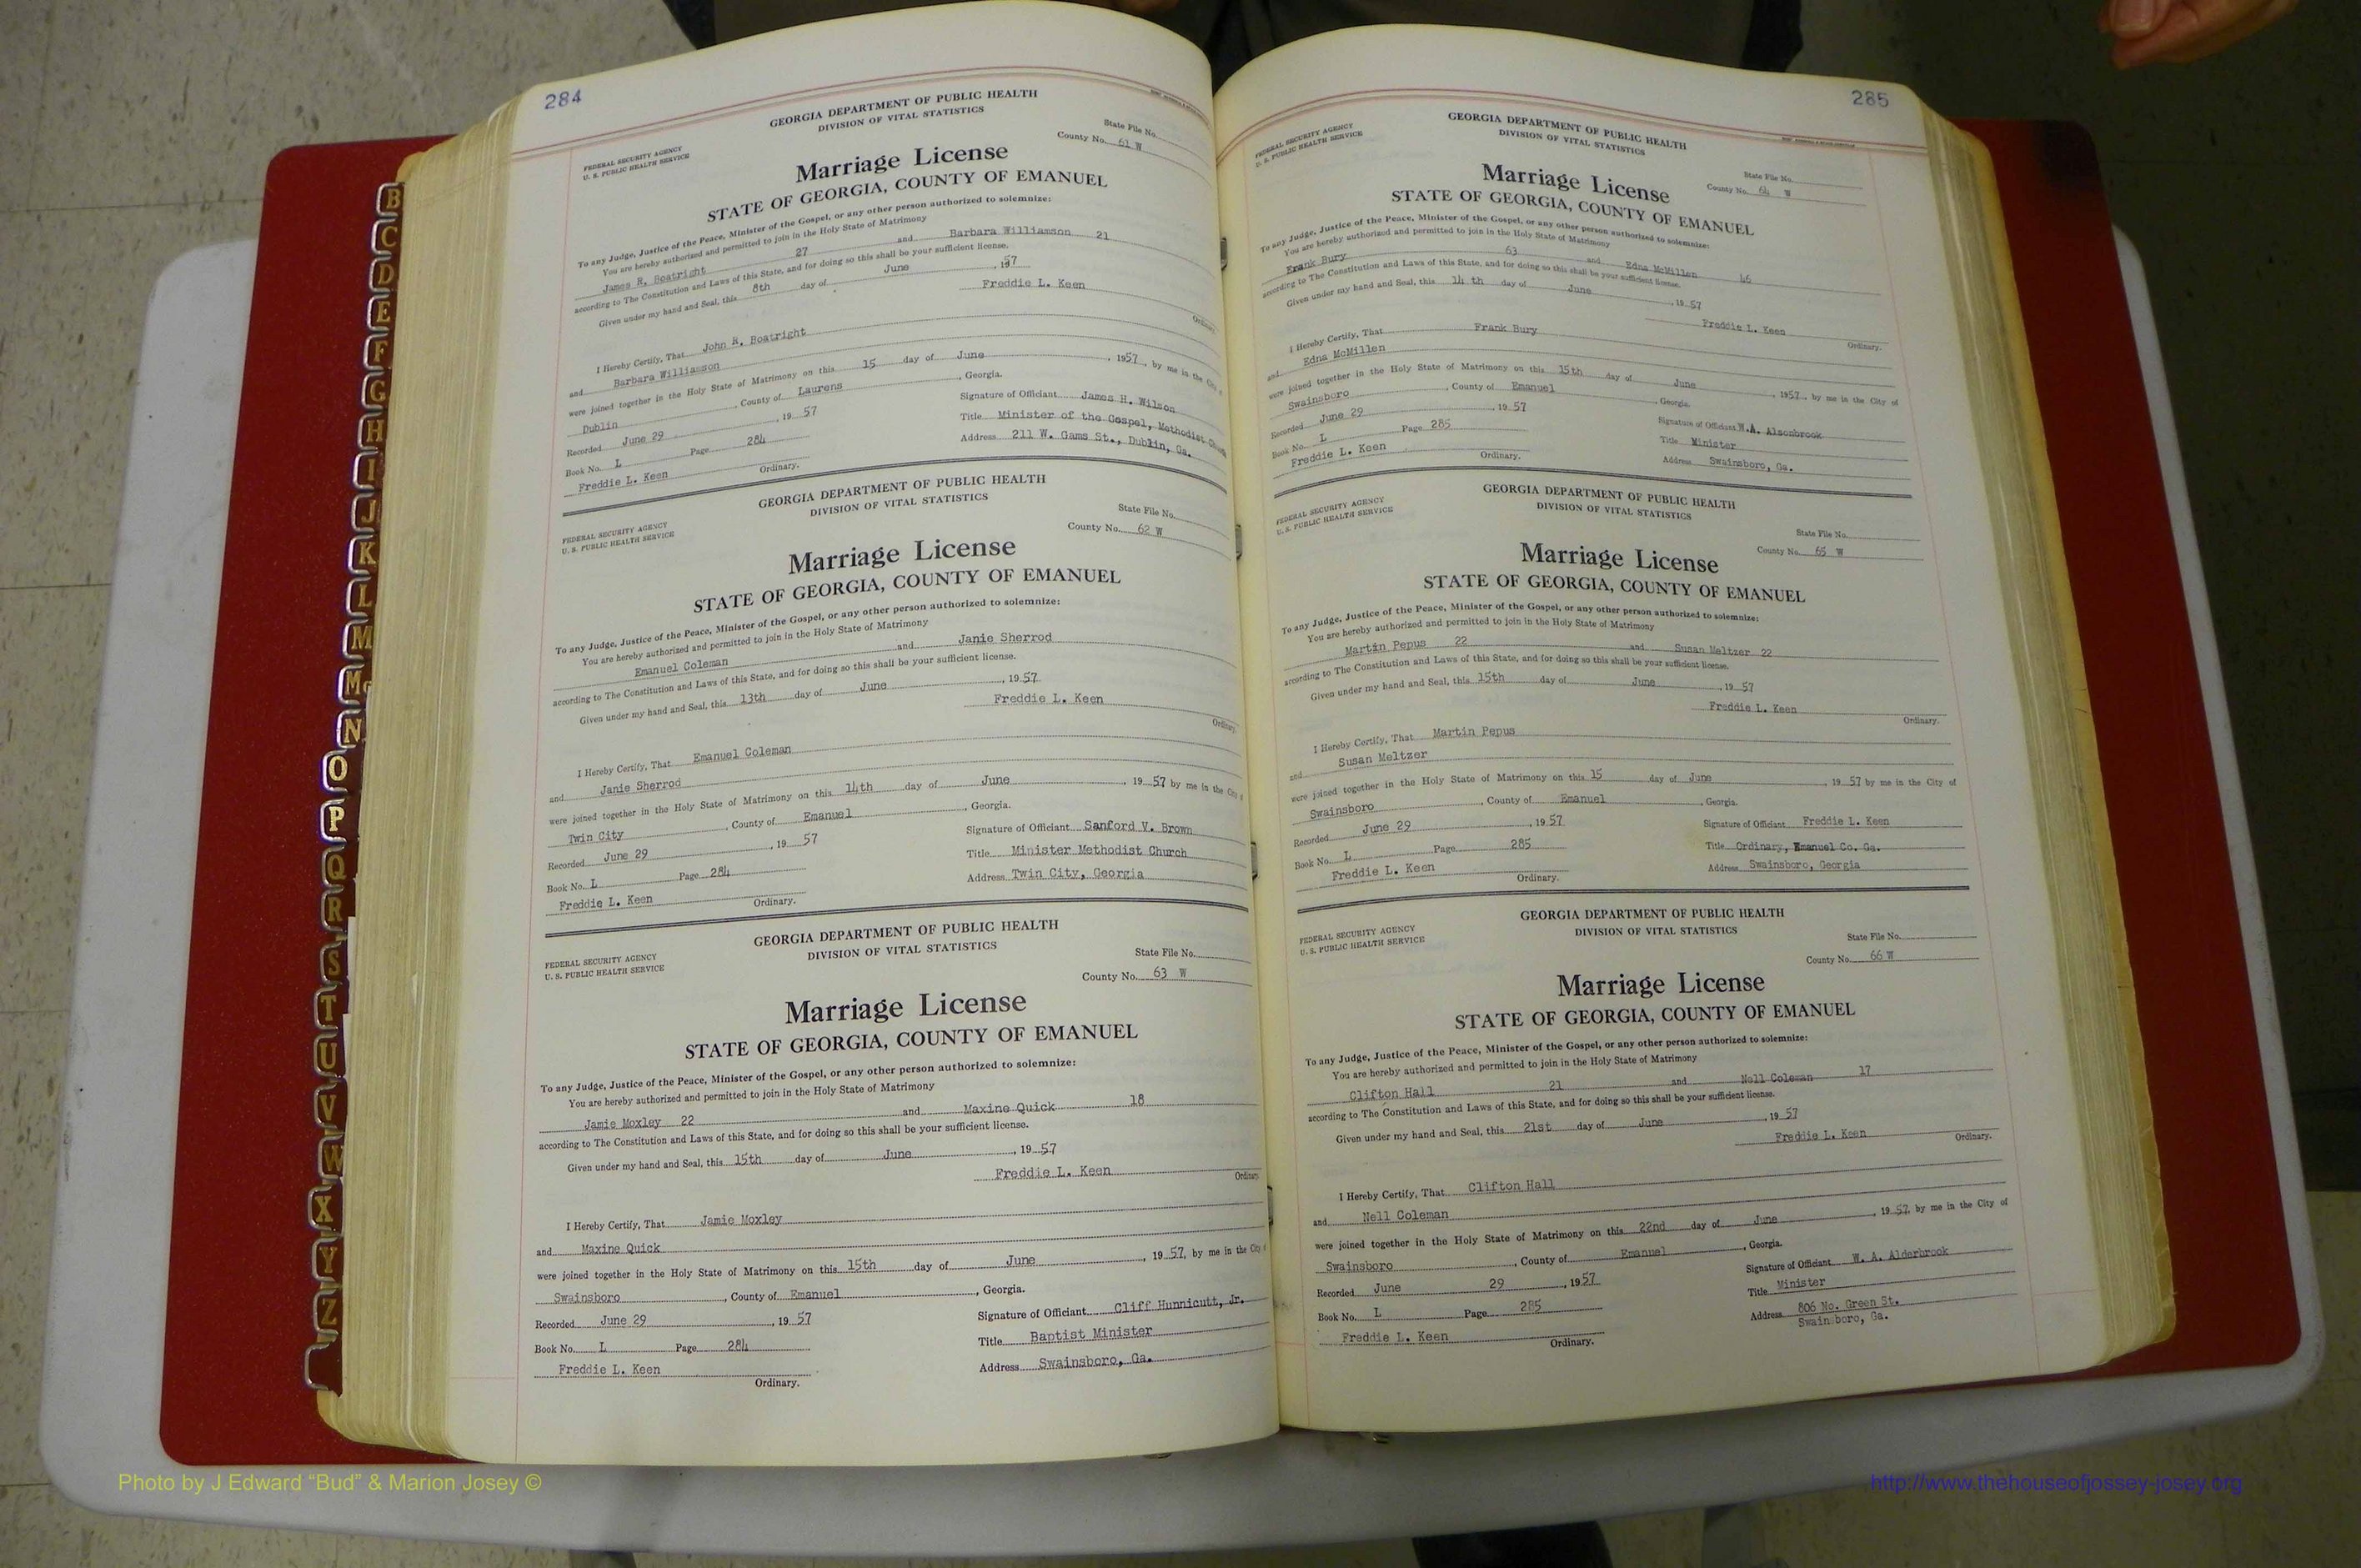 284
GEORGIA DEPARTMENT OF PUBLIC HEALTH
DIVISION OF VITAL STATISTICS
FEDERAL SECURITY AGENCY
U. S. PUBLIC HEALTH SERVICE
State File No.
County No. 61 W
Marriage License
STATE OF GEORGIA, COUNTY OF EMANUEL
To any Judge, Justice of the Peace, Minister of the Gospel, or any other person authorized to solemnize:
You are hereby authorized and permitted to join in the Holy State of Matrimony
James R. Boatright 27 and Barbara Williamson 21
according to The Constitution and Laws of this State, and for doing so this shall be your sufficient license.
Given under my hand and Seal, this 8th day of June, 1957
Freddie L. Keen
Ordinary.
I Hereby Certify, That John R. Boatright
and Barbara Williamson
were joined together in the Holy State of Matrimony on this 15 day of June, 1957, by me in the City of
Dublin, County of Laurens, Georgia.
Recorded June 29, 19 57
Signature of Officiant James H. Wilson
Book No. L Page 284
Title Minister of the Gospel, Methodist Church
Freddie L. Keen
Address 211 W. Gams St., Dublin, Ga.
Ordinary.
GEORGIA DEPARTMENT OF PUBLIC HEALTH
DIVISION OF VITAL STATISTICS
FEDERAL SECURITY AGENCY
U. S. PUBLIC HEALTH SERVICE
State File No.
County No. 62 W
Marriage License
STATE OF GEORGIA, COUNTY OF EMANUEL
To any Judge, Justice of the Peace, Minister of the Gospel, or any other person authorized to solemnize:
You are hereby authorized and permitted to join in the Holy State of Matrimony
Emanuel Coleman and Janie Sherrod
according to The Constitution and Laws of this State, and for doing so this shall be your sufficient license.
Given under my hand and Seal, this 13th day of June, 19 57
Freddie L. Keen
Ordinary.
I Hereby Certify, That Emanuel Coleman
and Janie Sherrod
were joined together in the Holy State of Matrimony on this 14th day of June, 19 57 by me in the City of
Twin City, County of Emanuel, Georgia.
Recorded June 29, 19 57
Signature of Officiant Sanford V. Brown
Book No. L Page 284
Title Minister Methodist Church
Freddie L. Keen
Address Twin City, Georgia
Ordinary.
GEORGIA DEPARTMENT OF PUBLIC HEALTH
DIVISION OF VITAL STATISTICS
FEDERAL SECURITY AGENCY
U. S. PUBLIC HEALTH SERVICE
State File No.
County No. 63 W
Marriage License
STATE OF GEORGIA, COUNTY OF EMANUEL
To any Judge, Justice of the Peace, Minister of the Gospel, or any other person authorized to solemnize:
You are hereby authorized and permitted to join in the Holy State of Matrimony
Jamie Moxley 22 and Maxine Quick 18
according to The Constitution and Laws of this State, and for doing so this shall be your sufficient license.
Given under my hand and Seal, this 15th day of June, 19 57
Freddie L. Keen
Ordinary
I Hereby Certify, That Jamie Moxley
and Maxine Quick
were joined together in the Holy State of Matrimony on this 15th day of June, 19 57, by me in the City
Swainsboro, County of Emanuel, Georgia.
Recorded June 29, 19 57
Signature of Officiant Cliff Hunnicutt, Jr.
Book No. L Page 284
Title Baptist Minister
Freddie L. Keen
Address Swainsboro, Ga.
Ordinary.
285
GEORGIA DEPARTMENT OF PUBLIC HEALTH
DIVISION OF VITAL STATISTICS
FEDERAL SECURITY AGENCY
U. S. PUBLIC HEALTH SERVICE
State File No.
County No. 64 W
Marriage License
STATE OF GEORGIA, COUNTY OF EMANUEL
To any Judge, Justice of the Peace, Minister of the Gospel, or any other person authorized to solemnize:
You are hereby authorized and permitted to join in the Holy State of Matrimony
Frank Bury 63 and Edna McMillen 46
according to The Constitution and Laws of this State, and for doing so this shall be your sufficient license.
Given under my hand and Seal, this 14 th day of June, 19 57
Freddie L. Keen
Ordinary.
I Hereby Certify, That Frank Bury
and Edna McMillen
were joined together in the Holy State of Matrimony on this 15th day of June, 1957, by me in the City of
Swainsboro, County of Emanuel, Georgia.
Recorded June 29, 19 57
Signature of Officiant W.A. Alsonbrook
Book No. L Page 285
Title Minister
Freddie L. Keen
Address Swainsboro, Ga.
Ordinary.
GEORGIA DEPARTMENT OF PUBLIC HEALTH
DIVISION OF VITAL STATISTICS
FEDERAL SECURITY AGENCY
U. S. PUBLIC HEALTH SERVICE
State File No.
County No. 65 W
Marriage License
STATE OF GEORGIA, COUNTY OF EMANUEL
To any Judge, Justice of the Peace, Minister of the Gospel, or any other person authorized to solemnize:
You are hereby authorized and permitted to join in the Holy State of Matrimony
Martin Pepus 22 and Susan Meltzer 22
according to The Constitution and Laws of this State, and for doing so this shall be your sufficient license.
Given under my hand and Seal, this 15th day of June, 19 57
Freddie L. Keen
Ordinary.
I Hereby Certify, That Martin Pepus
and Susan Meltzer
were joined together in the Holy State of Matrimony on this 15 day of June, 19 57 by me in the City of
Swainsboro, County of Emanuel, Georgia.
Recorded June 29, 19 57
Signature of Officiant Freddie L. Keen
Book No. L Page 285
Title Ordinary, Emanuel Co. Ga.
Freddie L. Keen
Address Swainsboro, Georgia
Ordinary.
GEORGIA DEPARTMENT OF PUBLIC HEALTH
DIVISION OF VITAL STATISTICS
FEDERAL SECURITY AGENCY
U. S. PUBLIC HEALTH SERVICE
State File No.
County No. 66 W
Marriage License
STATE OF GEORGIA, COUNTY OF EMANUEL
To any Judge, Justice of the Peace, Minister of the Gospel, or any other person authorized to solemnize:
You are hereby authorized and permitted to join in the Holy State of Matrimony
Clifton Hall 21 and Nell Coleman 17
according to The Constitution and Laws of this State, and for doing so this shall be your sufficient license.
Given under my hand and Seal, this 21st day of June, 19 57
Freddie L. Keen
Ordinary.
I Hereby Certify, That Clifton Hall
and Nell Coleman
were joined together in the Holy State of Matrimony on this 22nd day of June, 19 57, by me in the City of
Swainsboro, County of Emanuel, Georgia.
Recorded June 29, 1957
Signature of Officiant W. A. Alderbrook
Book No. L Page 285
Title Minister
Freddie L. Keen
Address 806 No. Green St.
Swainsboro, Ga.
Ordinary.
B
C
D
E
F
G
H
I
J
K
L
M
Mc
N
O
P
Q
R
S
T
U
V
W
X
Y
Z
Photo by J Edward “Bud” & Marion Josey ©
http://www.thehouseofjossey-josey.org